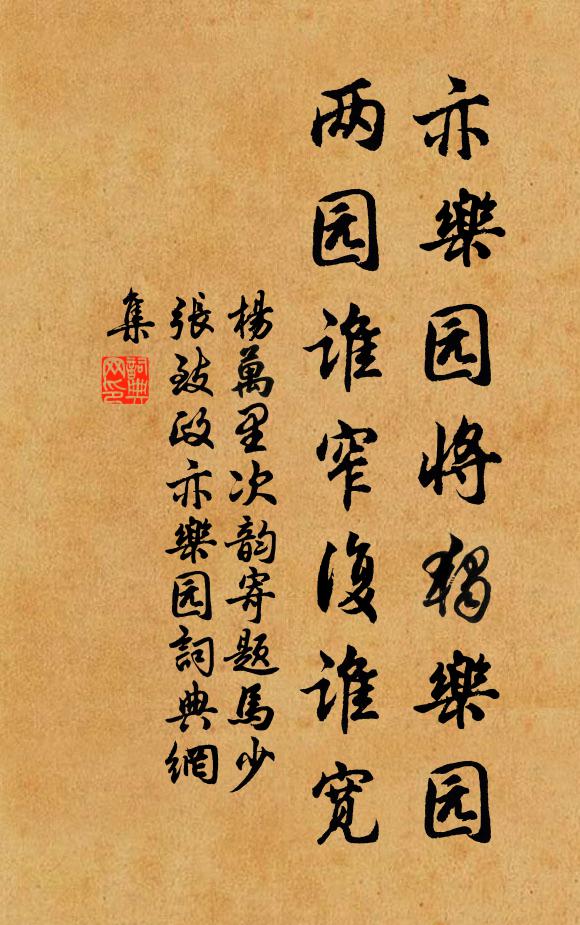 亦樂园将獨樂园
两园谁窄復谁寬
楊萬里次韵寄题馬少
張致政亦樂园詞典網
集
詞典网印